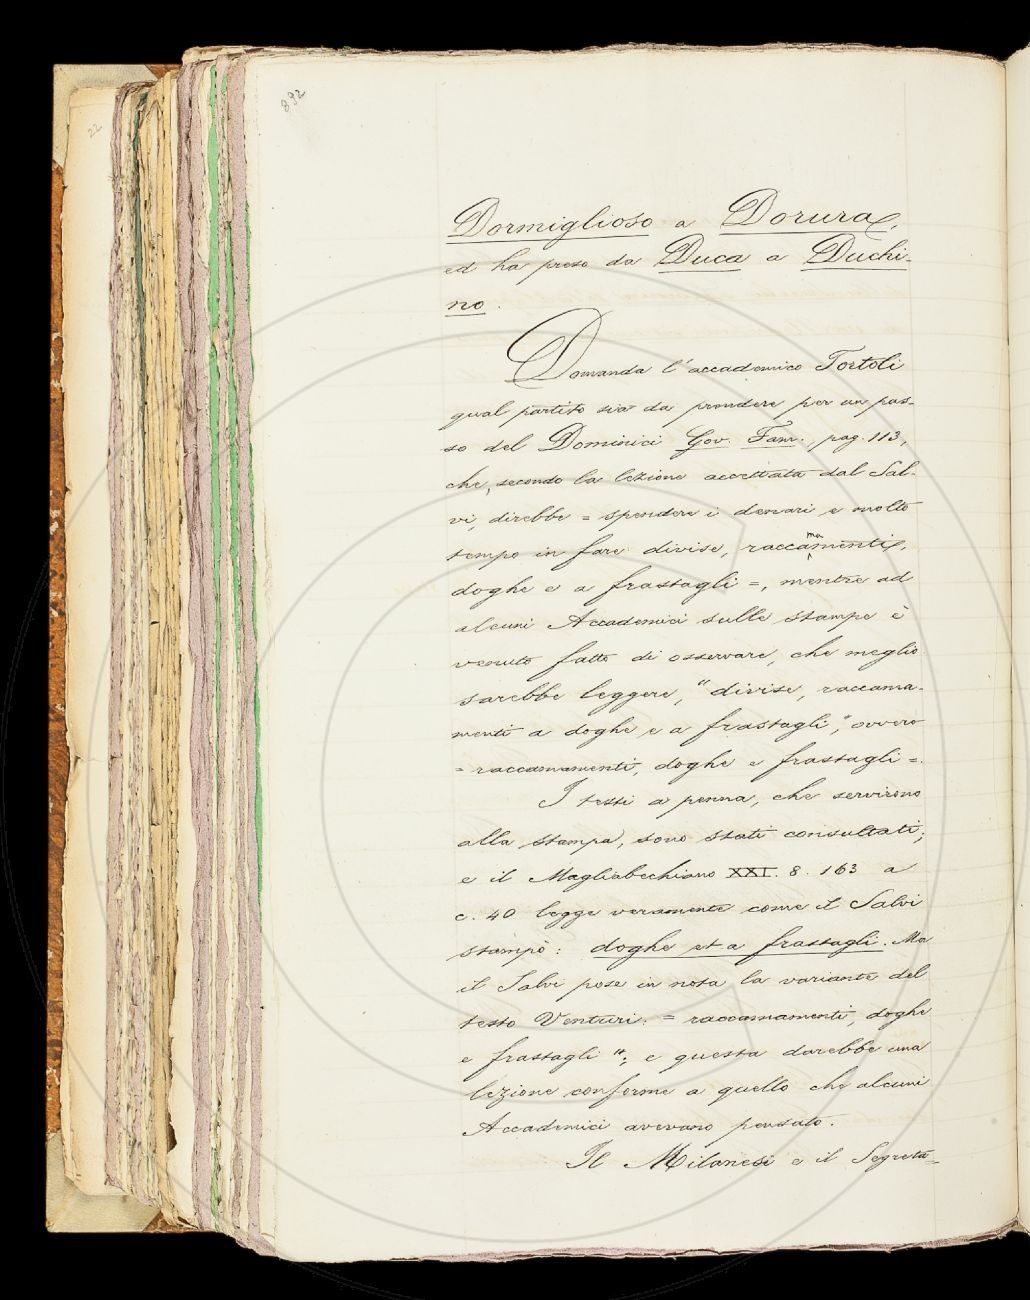 892
22
Dormiglioso a Dorura,
ed ha preso da Duca a Duchi-
no.
Domanda l'accademico Tortoli
qual partito sia da prendere per un pas-
so del Dominici Gov. Fam., pag. 113,
che, secondo la lezione accettata dal Sal-
vi, direbbe = spendere i denari e molto
tempo in fare divise, raccamamenti,
doghe e a frastagli =, mentre ad
alcuni Accademici sulle stampe è
venuto fatto di osservare, che meglio
sarebbe leggere, "divise, raccama-
menti a doghe e a frastagli", ovvero
= raccamamenti, doghe e frastagli =.
I testi a penna, che servirono
alla stampa, sono stati consultati;
e il Magliabechiano XXI. 8. 163 a
c. 40 legge veramente come il Salvi
stampò: doghe et a frastagli. Ma
il Salvi pose in nota la variante del
testo Venturi. = raccamamenti, doghe
e frastagli "; e questa darebbe una
lezione conforme a quello che alcuni
Accademici avevano pensato.
Il Milanesi e il Segreta-